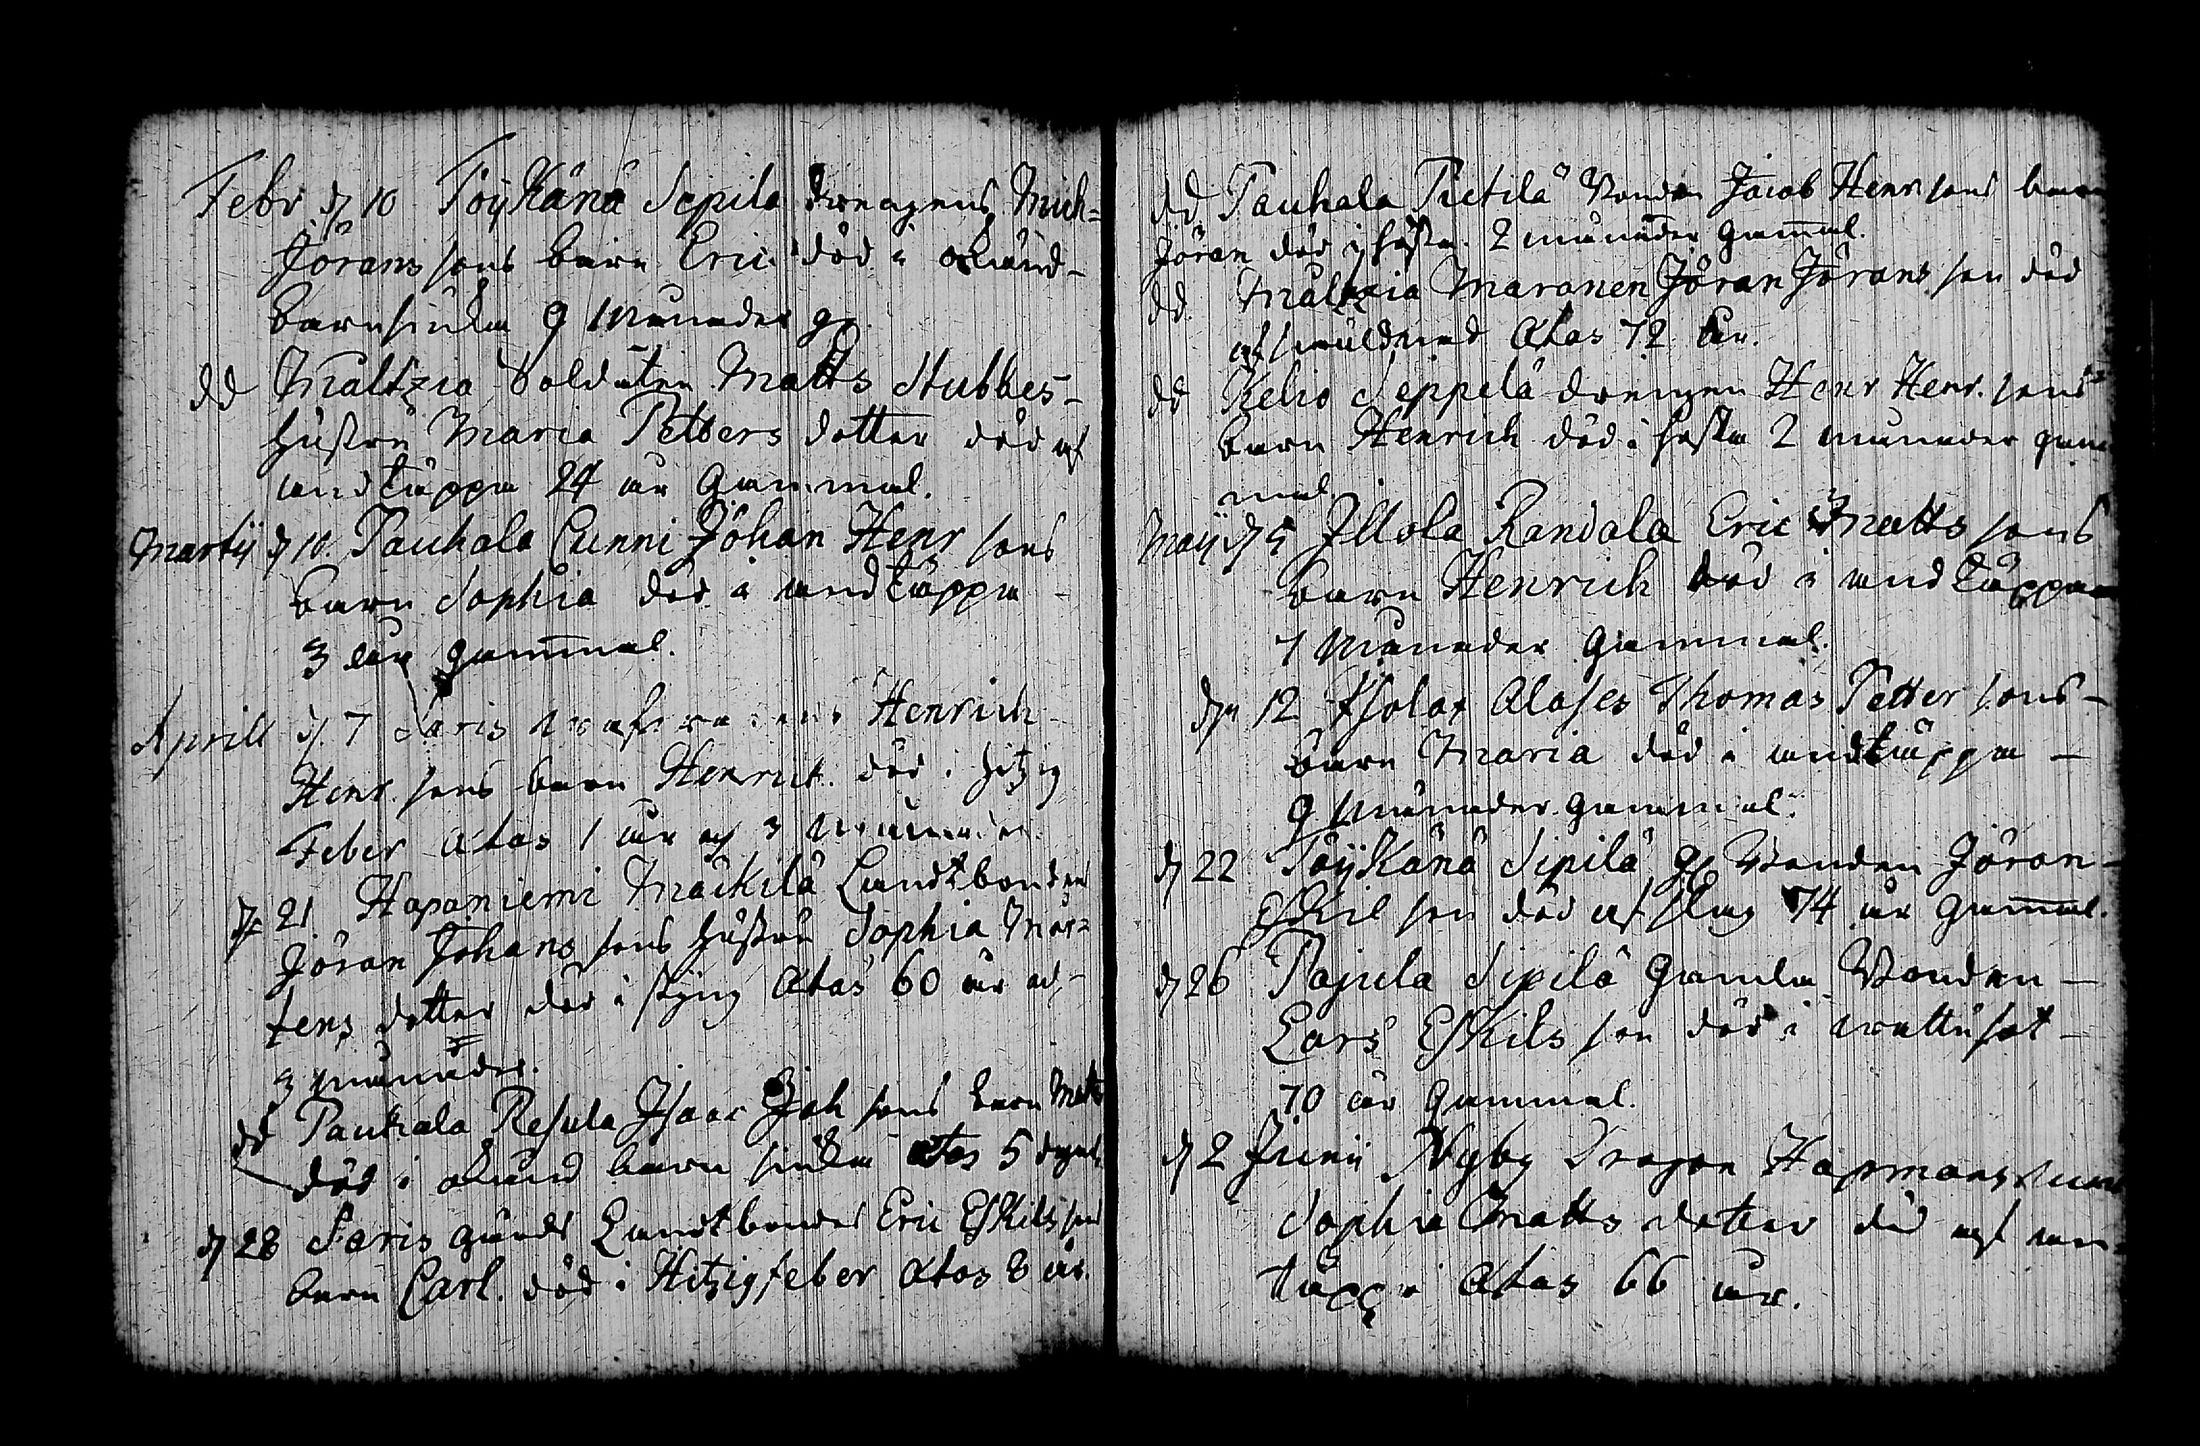 Febr. d 10 Töykänä Sipila drengens Mich=
Jöransons barn Eric död i okänd-
barnsiuka 9 månader g.
dd Maltzia Soldaten Matts Stubbes-
hustru Maria Petters dotter död af
andtäppa 24 åhr gammal.
Martij d 10. Pauhala Cunni Johan Henr sons
barn Sophia död i andtäppa
3 åhr gammal.
Aprill d. 7 Saris Henrich
Henr. sons barn Henrich död i hitzig
Feber Ætas 1 åhr och 3 månader
d. 21. Haponiemi Mäckilä Landtbonden
Jöran Johans sons hustru Sophia Mår=
tens dotter död i styng Ætas 60 åhr och
3 månader.
dd Pauhala Resula Isaac Joh sons barn Matts
död i okänd barn siuka Ætas 5 dygn
d 28 Saris gårds Landtbondes Eric Eskils son
barn Carl. död i Hitzigfeber Ætas 8 åhr.
dd Pauhala Pietilä Bonden Jacob Henr sons barn
Jöran död i hosta. 2 månader gammal.
dd. Maltzia Maranen Jöran Jörans son död
af Ætas 72 åhr.
dd Kelio Seppelä drengen Henr Henr. sons
barn Henrich död i hosta 2 månader gam
mal
Maij d 5 Illola Randala Eric Matts sons
barn Henrich död i andtäppa
7 månader gammal.
dn 12 Alases Thomas Petter sons-
barn Maria död i andtäppa -
9 månader gammal.
d 22 Töykänä Sipilä gl Bonden Jöran-
Eskil son död af slag 74 åhr gammal.
d 26 Pajula Sipilä gamla Bonden -
Lars Eskils son död i -
70 åhr gammal.
d 2 Junii Nyby Dragon
Sophia Matts dotter död af an-
täppa Ætas 66 åhr.